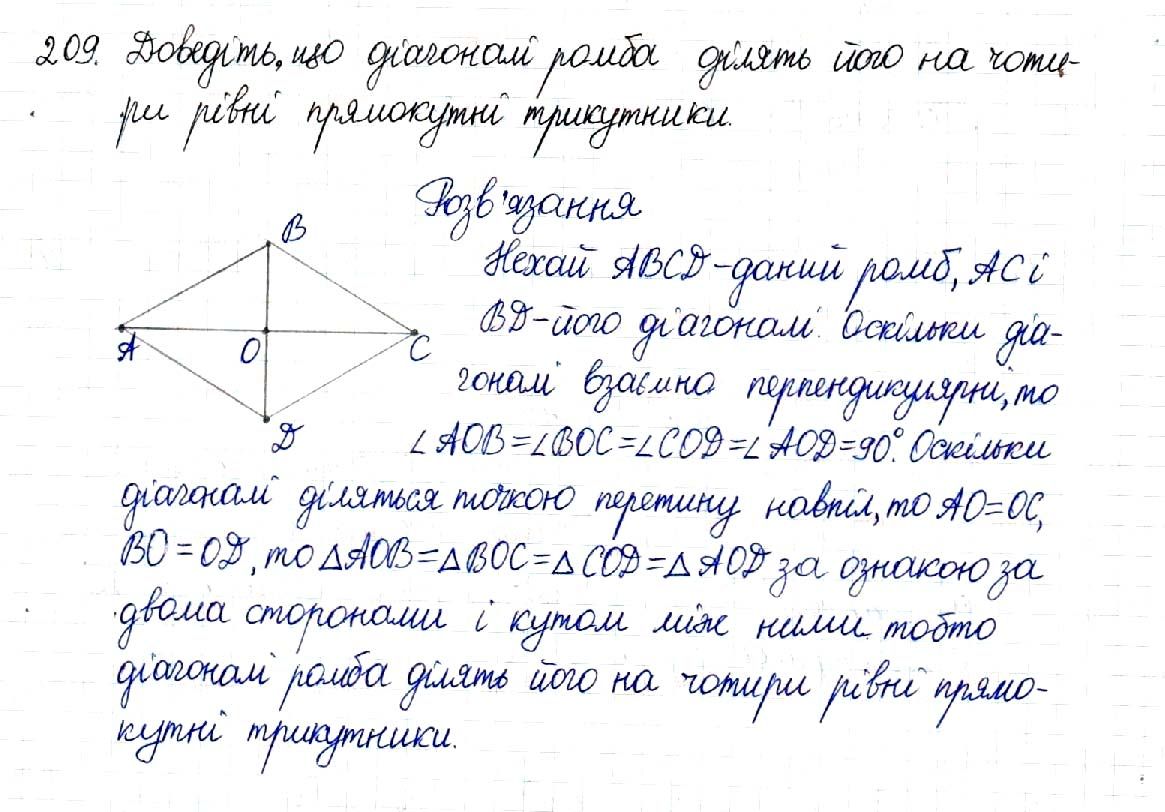 209. Доведіть, що діагоналі ромба ділять його на чоти-
ри рівні прямокутні трикутники.
Розв'язання
B
Нехай ABCD – даний ромб, AC і
BD – його діагоналі. Оскільки діа-
A
O
C
гоналі взаємно перпендикулярні, то
D
∠AOB = ∠BOC = ∠COD = ∠AOD = 90°. Оскільки
діагоналі діляться точкою перетину навпіл, то AO = OC,
BO = OD, то △AOB = △BOC = △COD = △AOD за ознакою за
двома сторонами і кутом між ними тобто
діагоналі ромба ділять його на чотири рівні прямо-
кутні трикутники.